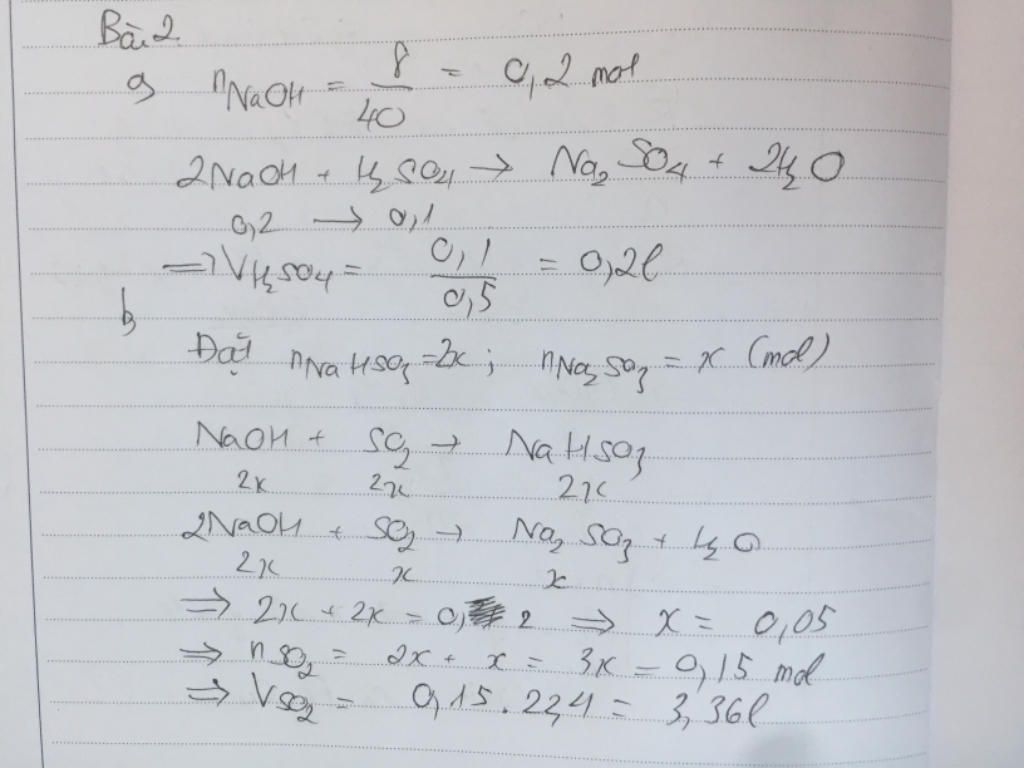 Bài 2.
a) nNaOH = 8/40 = 0,2 mol
2NaOH + H₂SO₄ → Na₂SO₄ + 2H₂O
0,2 → 0,1
⇒ VH₂SO₄ = 0,1/0,5 = 0,2l
b)
Đặt nNaHSO₃ = 2x ; nNa₂SO₃ = x (mol)
NaOH + SO₂ → NaHSO₃
2x 2x 2x
2NaOH + SO₂ → Na₂SO₃ + H₂O
2x x x
⇒ 2x + 2x = 0,2 ⇒ x = 0,05
⇒ nSO₂ = 2x + x = 3x = 0,15 mol
⇒ VSO₂ = 0,15 . 22,4 = 3,36l